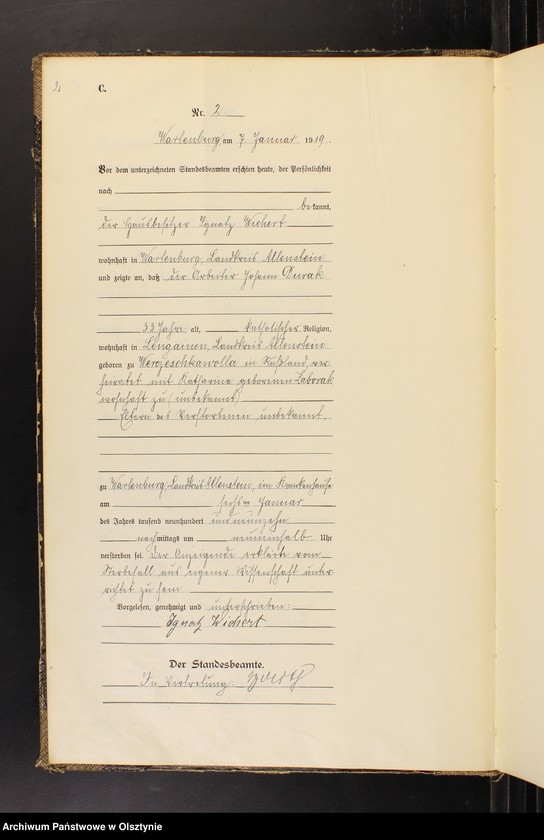 2
C.
Nr. 2
Wartenburg am 7 Januar 1919.
Vor dem unterzeichneten Standesbeamten erschien heute, der Persönlichkeit
nach
bekannt,
der Hausbesitzer Ignatz Wichert
wohnhaft in Wartenburg, Landkreis Allenstein
und zeigte an, daß der Arbeiter Johann Durak
33 Jahre alt, katholischer Religion,
wohnhaft in Lengainen, Landkreis Allenstein
geboren zu in Rußland, ver
heiratet mit Katharina geborenen Laborak
wohnhaft zu (unbekannt)
Eltern des Verstorbenen unbekannt,
zu Wartenburg, Landkreis Allenstein, im Krankenhause
am sechsten Januar
des Jahres tausend neunhundert und neunzehn
nachmittags um neuneinhalb Uhr
verstorben sei. Der Anzeigende erklärte vom
Sterbefall aus eigener Wissenschaft unter
richtet zu sein.
Vorgelesen, genehmigt und unterschrieben:
Ignatz Wichert
Der Standesbeamte.
In Vertretung:
Archiwum Państwowe w Olsztynie